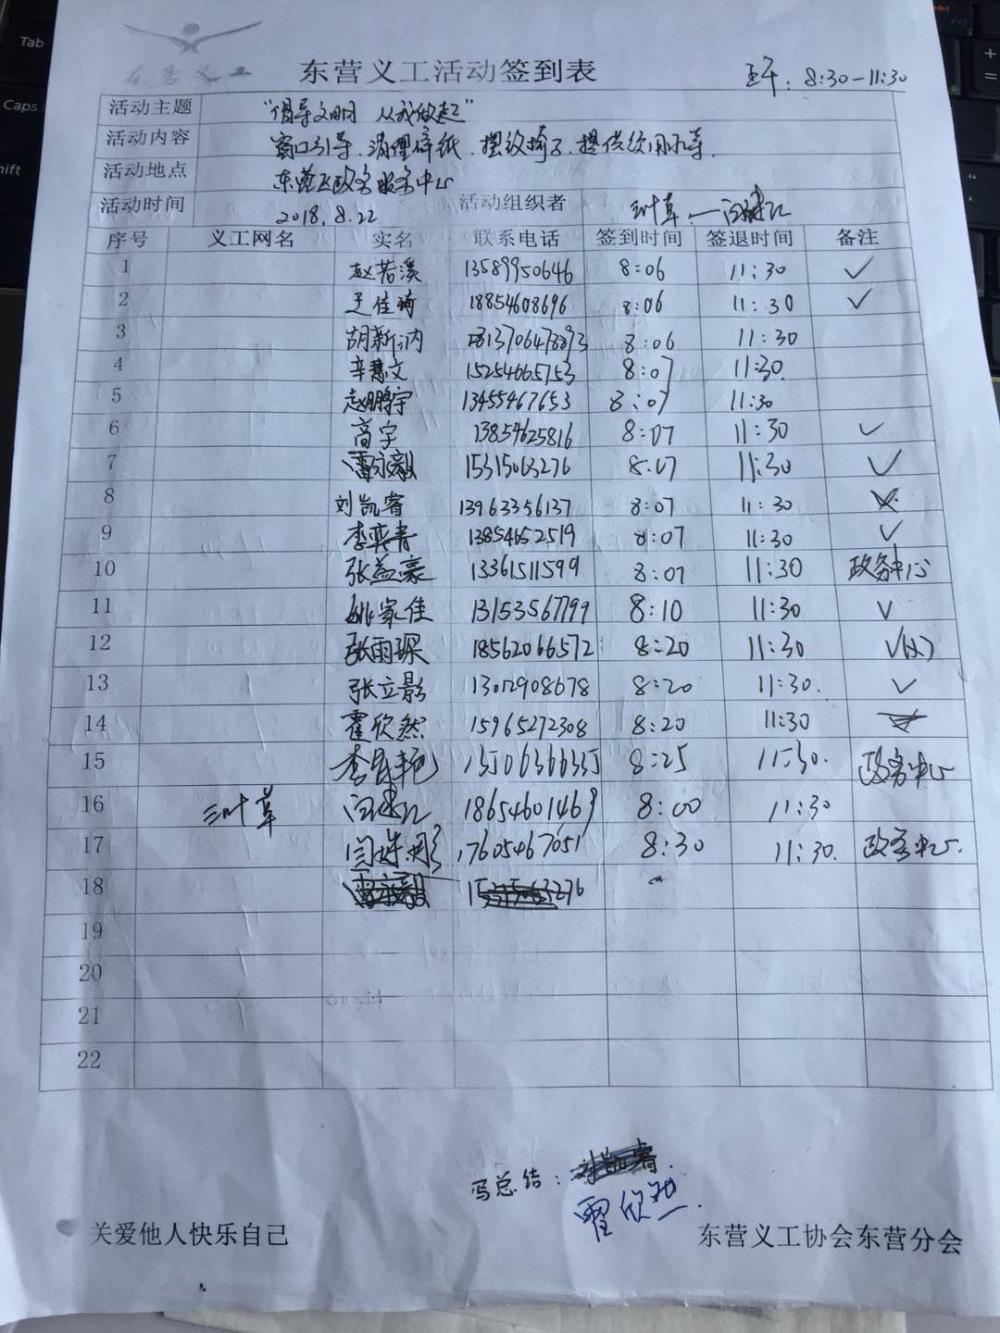 Tab
Caps
东营义工
东营义工活动签到表 上午: 8:30-11:30
活动主题 "倡导文明 从我做起"
活动内容 窗口引导、清理碎纸、摆放椅子、提供饮用水等.
活动地点 东营区政务服务中心
活动时间 2018.8.22 活动组织者 三叶草
序号 义工网名 实名 联系电话 签到时间 签退时间 备注
1 赵若溪 13589950646 8:06 11:30 ✓
2 王佳琦 18854608696 8:06 11:30 ✓
3 胡新汭 8:06 11:30
4 辛慧文 15254665753 8:07 11:30
5 赵鹏宇 13455467653 8:07 11:30
6 高宇 13854625816 8:07 11:30 ✓
7 雷永毅 15315063276 8:07 11:30 ✓
8 刘凯睿 13963356137 8:07 11:30
9 李奕青 13854652519 8:07 11:30 ✓
10 张益豪 13361511599 8:07 11:30 政务中心
11 姚家佳 13153567799 8:10 11:30 ✓
12 张雨琛 18562066572 8:20 11:30 ✓
13 张立影 13012908678 8:20 11:30. ✓
14 霍欣然 15965272308 8:20 11:30
15 8:25 11:30. 政务中心
16 三叶草 18654601469 8:00 11:30
17 17605467051 8:30 11:30. 政务中心.
18
19
20
21
22
写总结: 刘凯睿.
霍欣然.
关爱他人快乐自己 东营义工协会东营分会